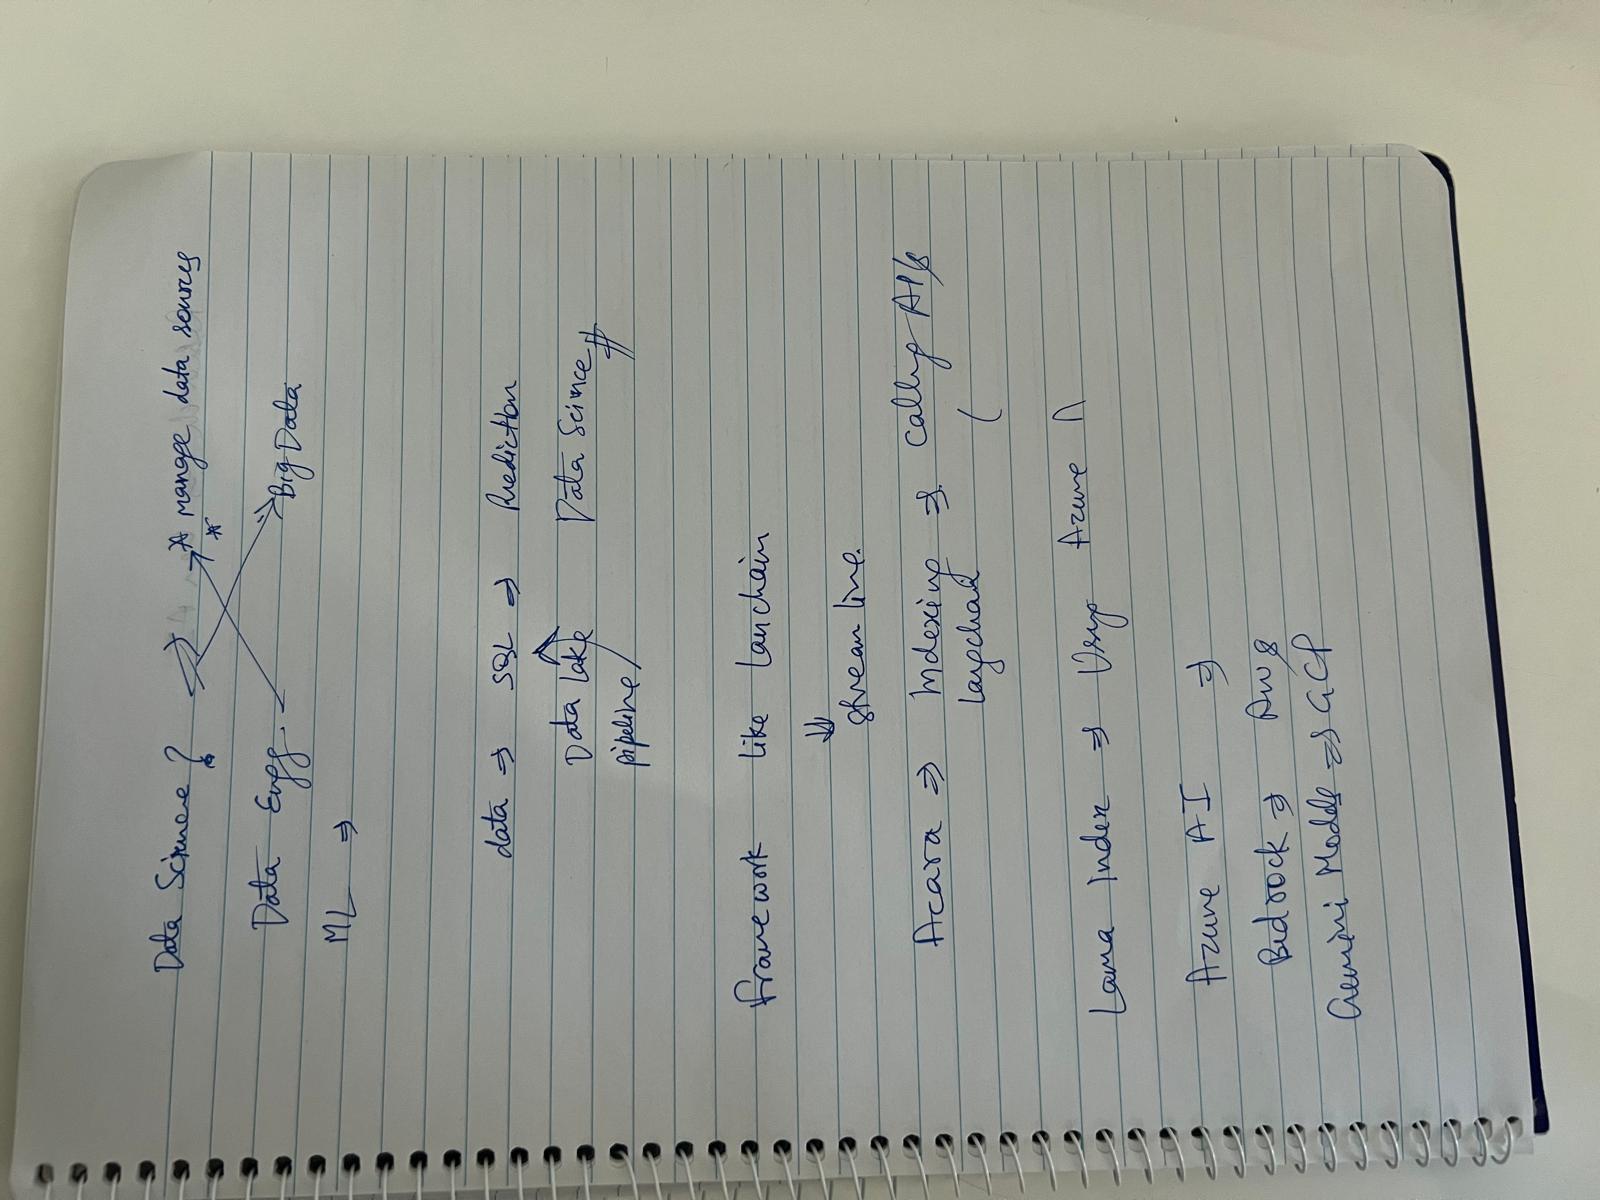 Data Science? ⇒ * manage data sources
Data Engg. → Big Data
ML ⇒
data ⇒ SQL ⇒ Prediction
Data Lake Data Science
pipeline
framework like Lanchain
⇓
stream line.
Acara ⇒ Indexing ⇒ Calling API's
langchain (
Lama Index ⇒ Using Azure
Azure AI ⇒
Bedrock ⇒ AWS
Gemini Models ⇒ GCP